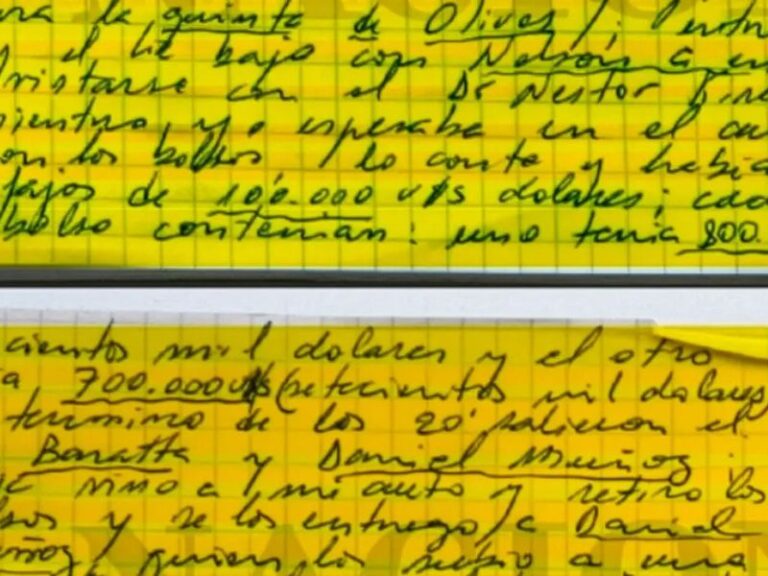 la quinta de Olivos
el Lic bajo con Nelson
con el Dr Nestor
mientras yo esperaba en el
con los bolsos / lo conte y habia
fajos de 100.000 u$s dolares; cada
bolso contenian: uno tenia 800.
cientos mil dolares y el otro
700.000 u$s (setecientos mil dolares
termino de los 20' salieron el
Baratta y Daniel Muñoz
vino a mi auto y retiro los
y se los entrego a Daniel
quien los subio a una
NACION